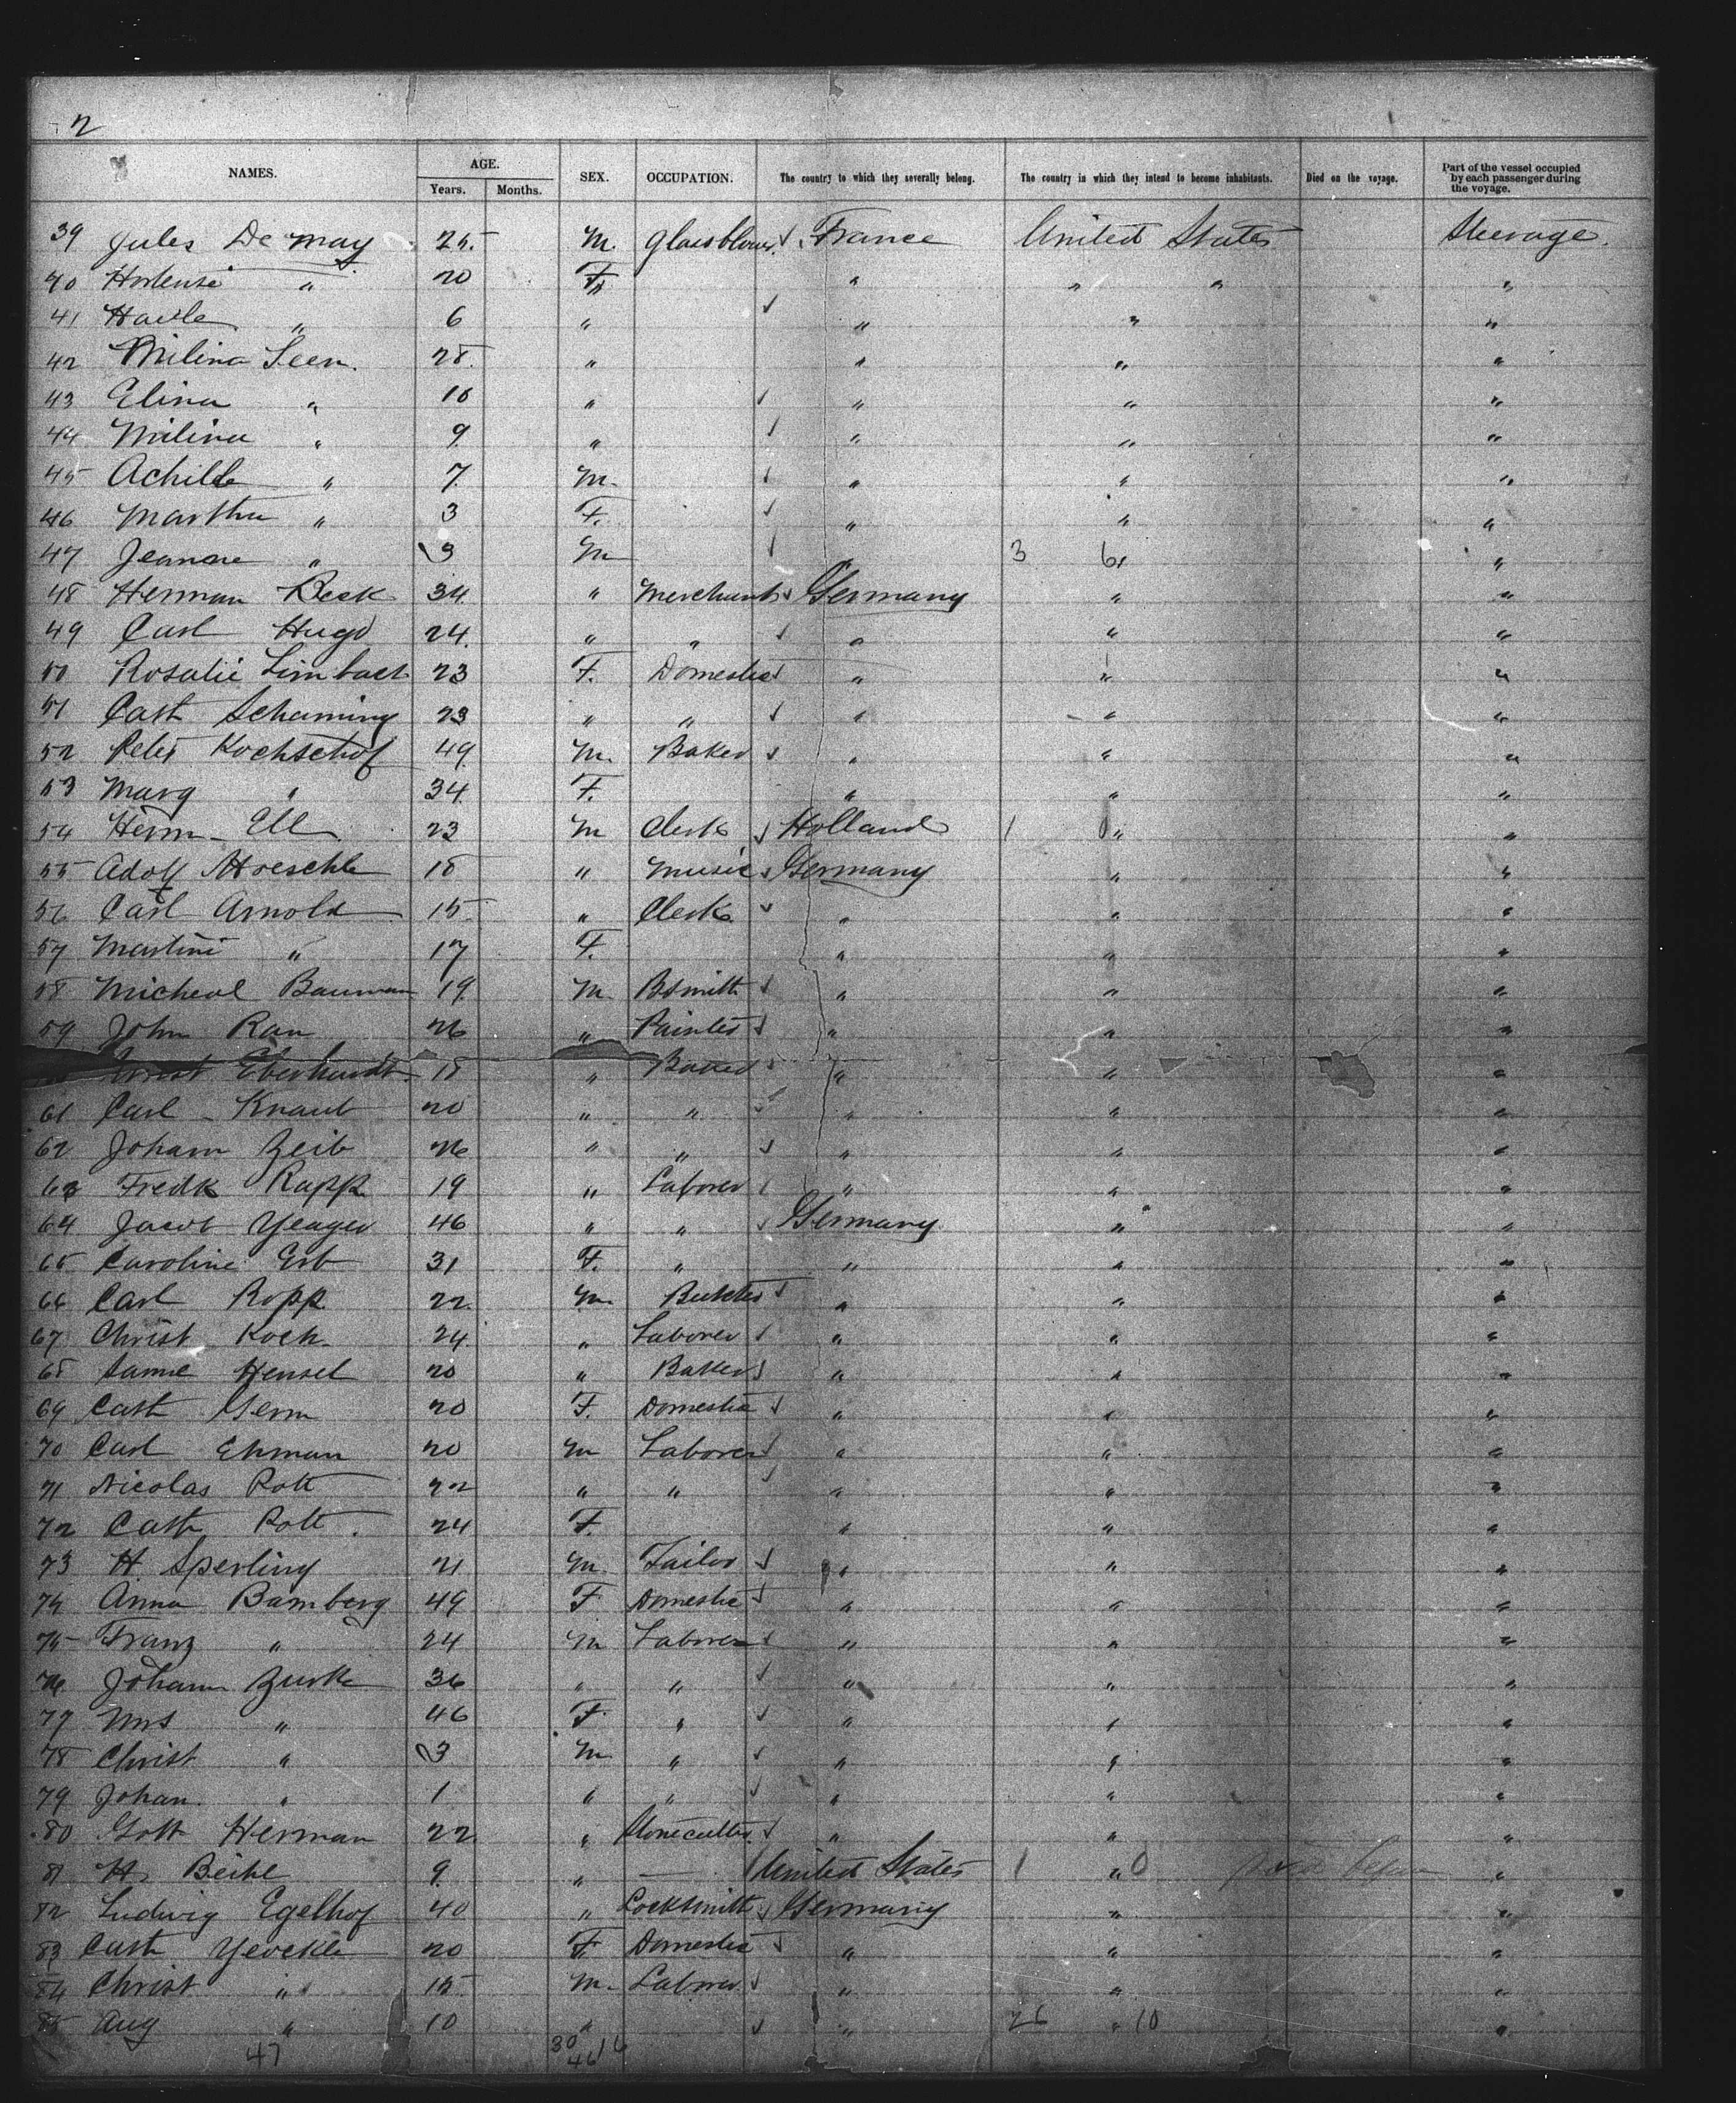 2
NAMES. AGE. SEX. OCCUPATION. The country to which they severally belong. The country in which they intend to become inhabitants. Died on the voyage. Part of the vessel occupied by each passenger during the voyage.
Years. Months.
39 Jules De may 25. M. Glassblower France United States Steerage.
40 Hortense " 20 F. " " " "
41 " 6 " " " "
42 Milina Seen. 28. " " " "
43 Elina " " " " "
44 Milina " 9. " " " "
45 Achille " 7. M. " " "
46 Martha " 3 F. " " "
47 Jeanne " 3 M 3 6 "
48 Herman Beck 34. " Merchant Germany " "
49 Carl Hugo 24. " " " " "
50 Rosalie Limbach 23 F. Domestic " " "
51 Cath Schaming 23 " " " " "
52 Peter Kochschof 49. M. Baker " " "
53 Marg " 34. F. " " "
54 Herm Ell 23 M Clerk Holland 1 " "
55 Adolf Hoeschle 18 " music Germany " "
56 Carl Arnold 15 " Clerk " " "
57 Martini " 17 F. " " "
58 Micheal Bauman 19. M. Bsmith " " "
59 John Rau 26 " Painter " " "
Eberhardt 18 " Baker " " "
61 Carl Knaub 20 " " " " "
62 Joham Zeib 26 " " " " "
63 Fredk Rapp 19 " Laborer " " "
64 Jacob Yeager 46 " " Germany " "
65 Caroline Erb 31 F. " " " "
66 Carl Ropp 22. M. Butcher " " "
67 Christ Koch 24. " Laborer " " "
68 Hensel 20 " Baker " " "
69 Cath Germ 20 F. Domestic " " "
70 Carl Ehman 20 M Laborer " " "
71 Nicolas Rott 22 " " " " "
72 Cath Rott. 24 F. " " "
73 H. Sperling 21 M. Tailor " " "
74 Anna Bamberg 49 F Domestic " " "
75 Franz " 24 M Laborer " " "
76 Joham Zurk 36 " " " " "
77 Mrs " 46 F. " " " "
78 Christ " 3 M " " " "
79 Johan. " 1 " " " " "
80 Gott Herman 22 " Stonecutter " " "
81 H. Beihl 9. " — United States 1 " 0 "
82 Ludwig Egelhof 40 " Locksmith Germany " "
83 Cath Yeockle 20 F. Domestic " " "
84 Christ " 15. M. Laborer " " "
85 Aug " 10 " " 26 " 10 "
47 30 16
46